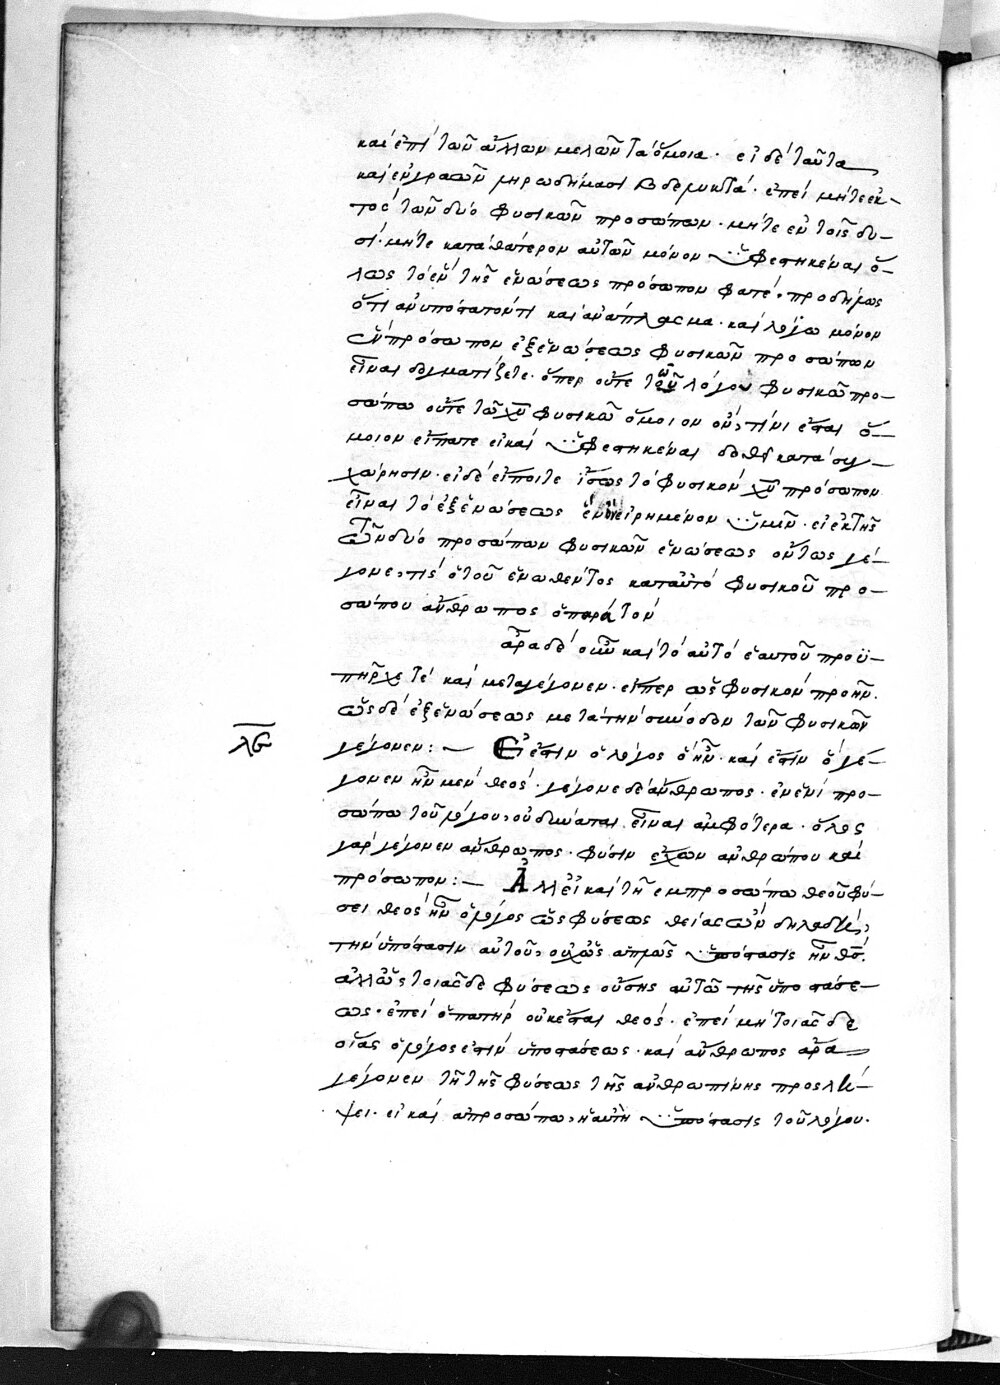 καὶ ἐπὶ τῶν ἄλλων μελῶν τὰ ὅμοια. εἰ δὲ ταῦτα
καὶ ἐν γραῶν μηρωδήμασι βδελυκτά. ἐπεὶ μήτε ἐκ-
τὸς τῶν δύο φυσικῶν προσώπων. μήτε ἐν τοῖς δυ-
σί. μήτε κατὰ θάτερον αὐτῶν μόνον ὑφεστηκέναι ὅ-
λως τὸ ἓν τῆς ἑνώσεως πρόσωπον φατέ. προδήλως
ὅτι ἀνυπόστατόν τι καὶ ἀνάπλασμα. καὶ λόγω μόνον
ἓν πρόσωπον ἐξ ἑνώσεως φυσικῶν προσώπων
εἶναι δογματίζετε. ὅπερ οὔτε τῶ τοῦ λόγου φυσικῶ προ-
σώπω οὔτε τῶ χυ φυσικῶ ὅμοιον οὖν τίνι ἔσται ὅ-
μοιον εἴπατε εἰ καὶ ὑφεστηκέναι δοθῆ κατὰ συγ-
χώρησιν. εἰ δὲ εἴποιτε ἴσως τὸ φυσικὸν χυ πρόσωπον
εἶναι τὸ ἐξ ἑνώσεως ἓν εἰρημένον ὑμῖν. εἰ ἐκ τῆς
τῶν δύο προσώπων φυσικῶν ἑνώσεως οὕτως γέ-
γονε, τίς ὁ τοῦ ἑνωθέντος κατ' αὐτὸ φυσικοῦ προ-
σώπου ἄνθρωπος ὁπαρὰ τὸν
ἆρα δὲ οὖν καὶ τὸ αὐτὸ ἑαυτοῦ προϋ-
πῆρχέ τε καὶ μεταγέγονεν. εἴπερ ὡς φυσικὸν προῆν.
ὡς δὲ ἐξ ἑνώσεως μετὰ τὴν σύνοδον τῶν φυσικῶν
γέγονεν:- Εἰ ἔστιν ὁ λόγος ὃ ἦν. καὶ ἔστιν ὃ γέ-
γονεν ἦν μὲν θεός. γέγονε δὲ ἄνθρωπος. ἐν ἑνὶ προ-
σώπω τοῦ λόγου, οὐ δύναται εἶναι ἀμφότερα. ὅλος
γὰρ γέγονεν ἄνθρωπος. φύσιν ἔχων ἀνθρώπου καὶ
πρόσωπον:- Ἀλλ' εἰ καὶ τῆ ἐμπροσώπω θεοῦ φύ-
σει θεὸς ἦν ὁ λόγος ὡς φύσεως θείας ὢν δηλαδὴ,
τὴν ὑπόστασιν αὐτοῦ, οὐχ ὡς ἁπλῶς ὑπόστασις ἦν θς.
ἀλλ' ὡς τοιᾶσδε φύσεως οὔσης αὐτῶ τῆς ὑποστάσε-
ως. ἐπεὶ ὁ πατὴρ οὐκ ἔσται θεός. ἐπεὶ μὴ τοιᾶσδε
οἵας ὁ λόγος ἐστὶν ὑποστάσεως. καὶ ἄνθρωπος ἄρα
γέγονεν τῆ τῆς φύσεως τῆς ἀνθρωπίνης προσλή-
ψει. εἰ καὶ ἀπροσώπω, ἡ αὐτὴ ὑπόστασις τοῦ λόγου.
λϛ